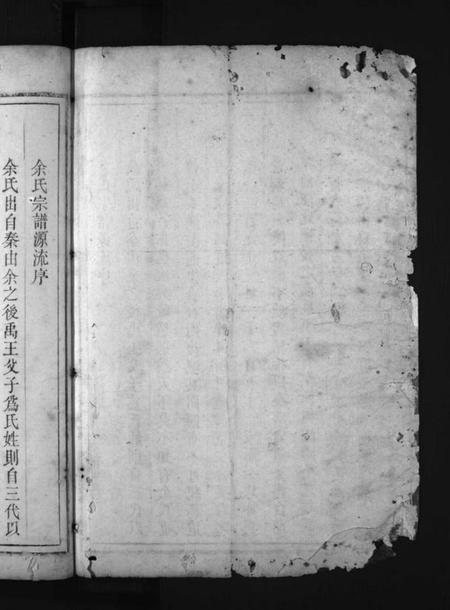 余氏宗譜源流序
余氏出自秦由余之後禹王支子為氏姓則自三代以